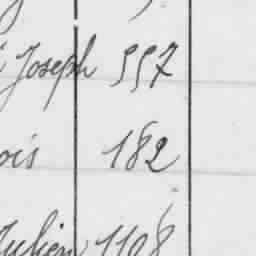 Joseph 557
ois 182
Julien 1108